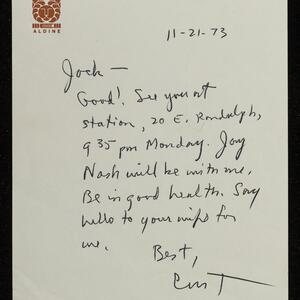 ALDINE
11-21-73
Jock —
Good! See you at
station, 20 E. Randolph,
9 35 pm Monday. Jay
Nash will be with me.
Be in good health. Say
hello to your wife for
me.
Best,